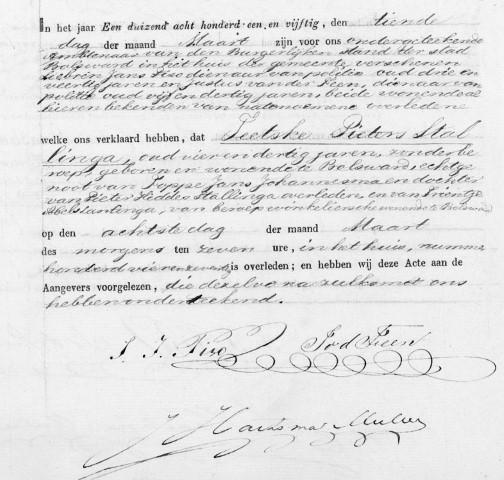 In het jaar Een duizend acht honderd een en vijftig, den tiende
dag der maand Maart zijn voor ons ondergeteekende
Ambtenaar van den Burgerlijken Stand der stad
Bolsward in het huis der gemeente verschenen
Jans Piso dienaar van politie oud drie en
veertig jaren en Justus van der Veen, dienaar van
politie oud vijf en dertig jaren beide wonende al
hier en bekenden van na te noemene overledene
welke ons verklaard hebben, dat Teetske Pieters Stal
linga, oud vier en dertig jaren, zonder be
roep, geboren en wonende te Bolsward, echtge
noot van Poppe Jans Johannesma en dochter
van Pieter Feddes Stallinga overleden en van Trijntje
van beroep winkeliersche wonende te Bolsward
op den achtste dag der maand Maart
des morgens ten zeven ure, in het huis, numme
honderd vier en is overleden; en hebben wij deze Acte aan de
Aangevers voorgelezen, die dezelve na zulks met ons
hebben onderteekend.
S. J. Piso JvdVeen
J Haitsma Mulier